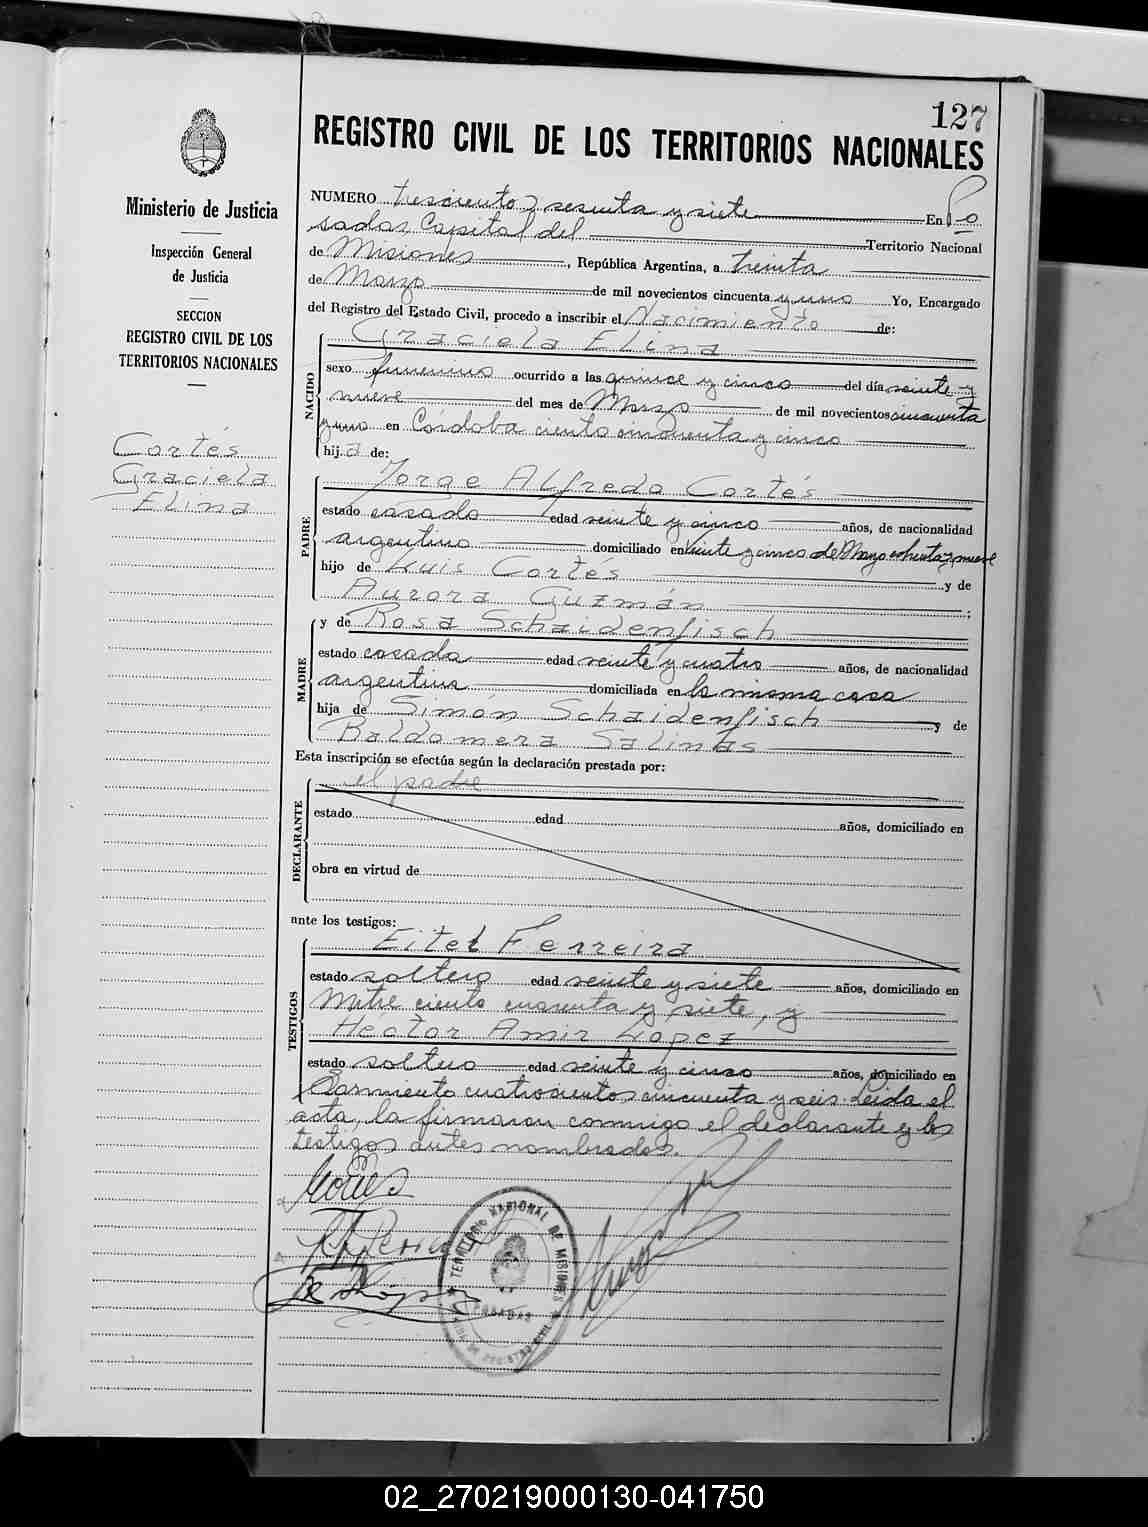 127
REGISTRO CIVIL DE LOS TERRITORIOS NACIONALES
Ministerio de Justicia
Inspección General
de Justicia
SECCION
REGISTRO CIVIL DE LOS
TERRITORIOS NACIONALES
Cortés
Graciela
Elina
NUMERO trescientos sesenta y siete En Po
sadas Capital del Territorio Nacional
de Misiones, República Argentina, a treinta
de Marzo de mil novecientos cincuenta y uno Yo, Encargado
del Registro del Estado Civil, procedo a inscribir el Nacimiento de:
NACIDO
Graciela Elina
sexo femenino ocurrido a las quince y cinco del día veinte y
nueve del mes de Marzo de mil novecientos cincuenta
y uno en Córdoba ciento cincuenta y cinco
hija de:
PADRE
Jorge Alfredo Cortés
estado casado edad veinte y cinco años, de nacionalidad
argentino domiciliado en veinte y cinco de Mayo ochenta y nueve
hijo de Luis Cortés y de
Aurora Guzmán;
MADRE
y de Rosa Schaidenfisch
estado casada edad veinte y cuatro años, de nacionalidad
argentina domiciliada en la misma casa
hija de Simón Schaidenfisch y de
Baldomera Salinas
Esta inscripción se efectúa según la declaración prestada por:
DECLARANTE
el padre
estado edad años, domiciliado en
obra en virtud de
ante los testigos:
TESTIGOS
Eitel Ferreira
estado soltero edad veinte y siete años, domiciliado en
Mitre ciento cuarenta y siete, y
Hector Amir Lopez
estado soltero edad veinte y cinco años, domiciliado en
Sarmiento cuatrocientos cincuenta y seis. Leida el
acta, la firmaron conmigo el declarante y los
testigos antes nombrados.
TERRITORIO NACIONAL DE MISIONES
POSADAS
02_270219000130-041750